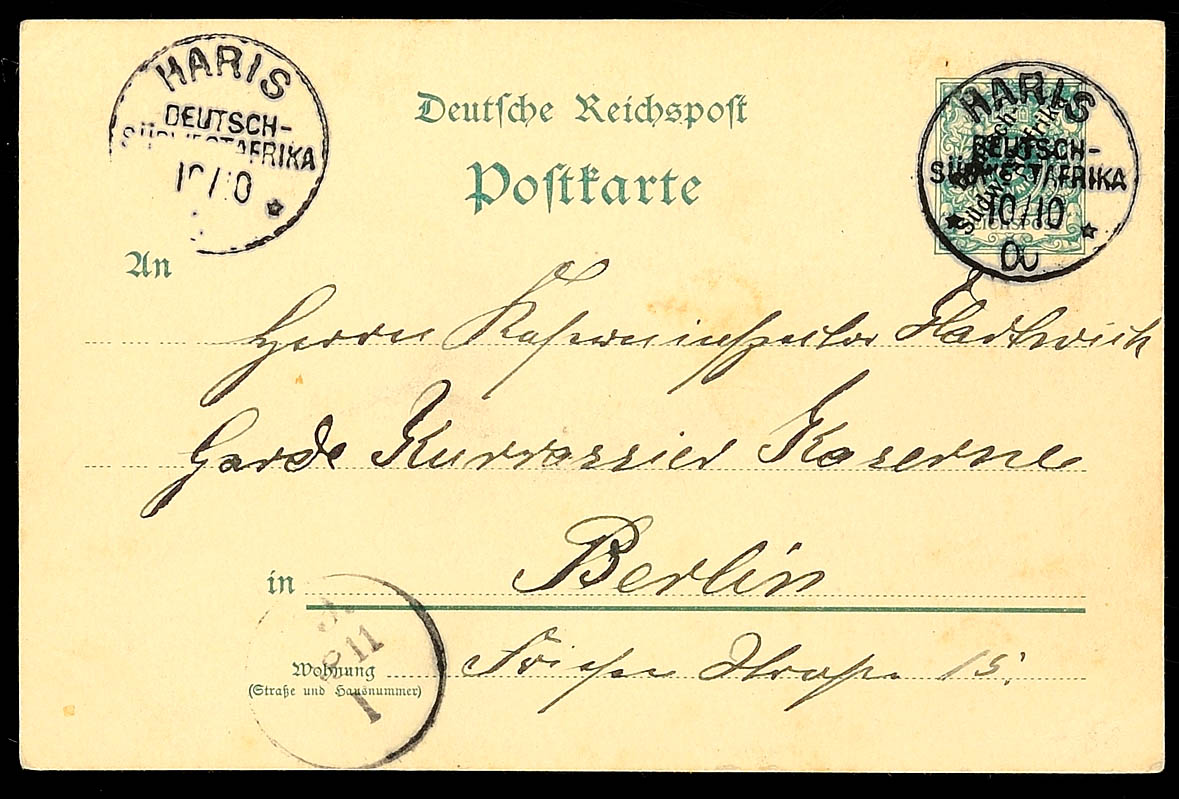 HARIS
DEUTSCH-
SÜDWESTAFRIKA
10/10
Deutsche Reichspost
Postkarte
HARIS
Deutsch-
Südwest-Afrika
DEUTSCH-
SÜDWESTAFRIKA
10/10
REICHSPOST
00
An
Herrn Kaserneninspektor Hartwich
Garde Kurrassier Kaserne
Berlin
in
11
Wohnung
(Straße und Hausnummer)
Straße 15.